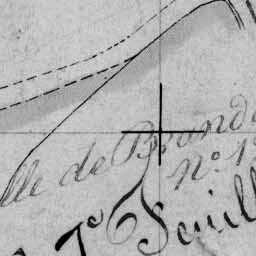 lle de Brond
N.º 1
7º Feuill